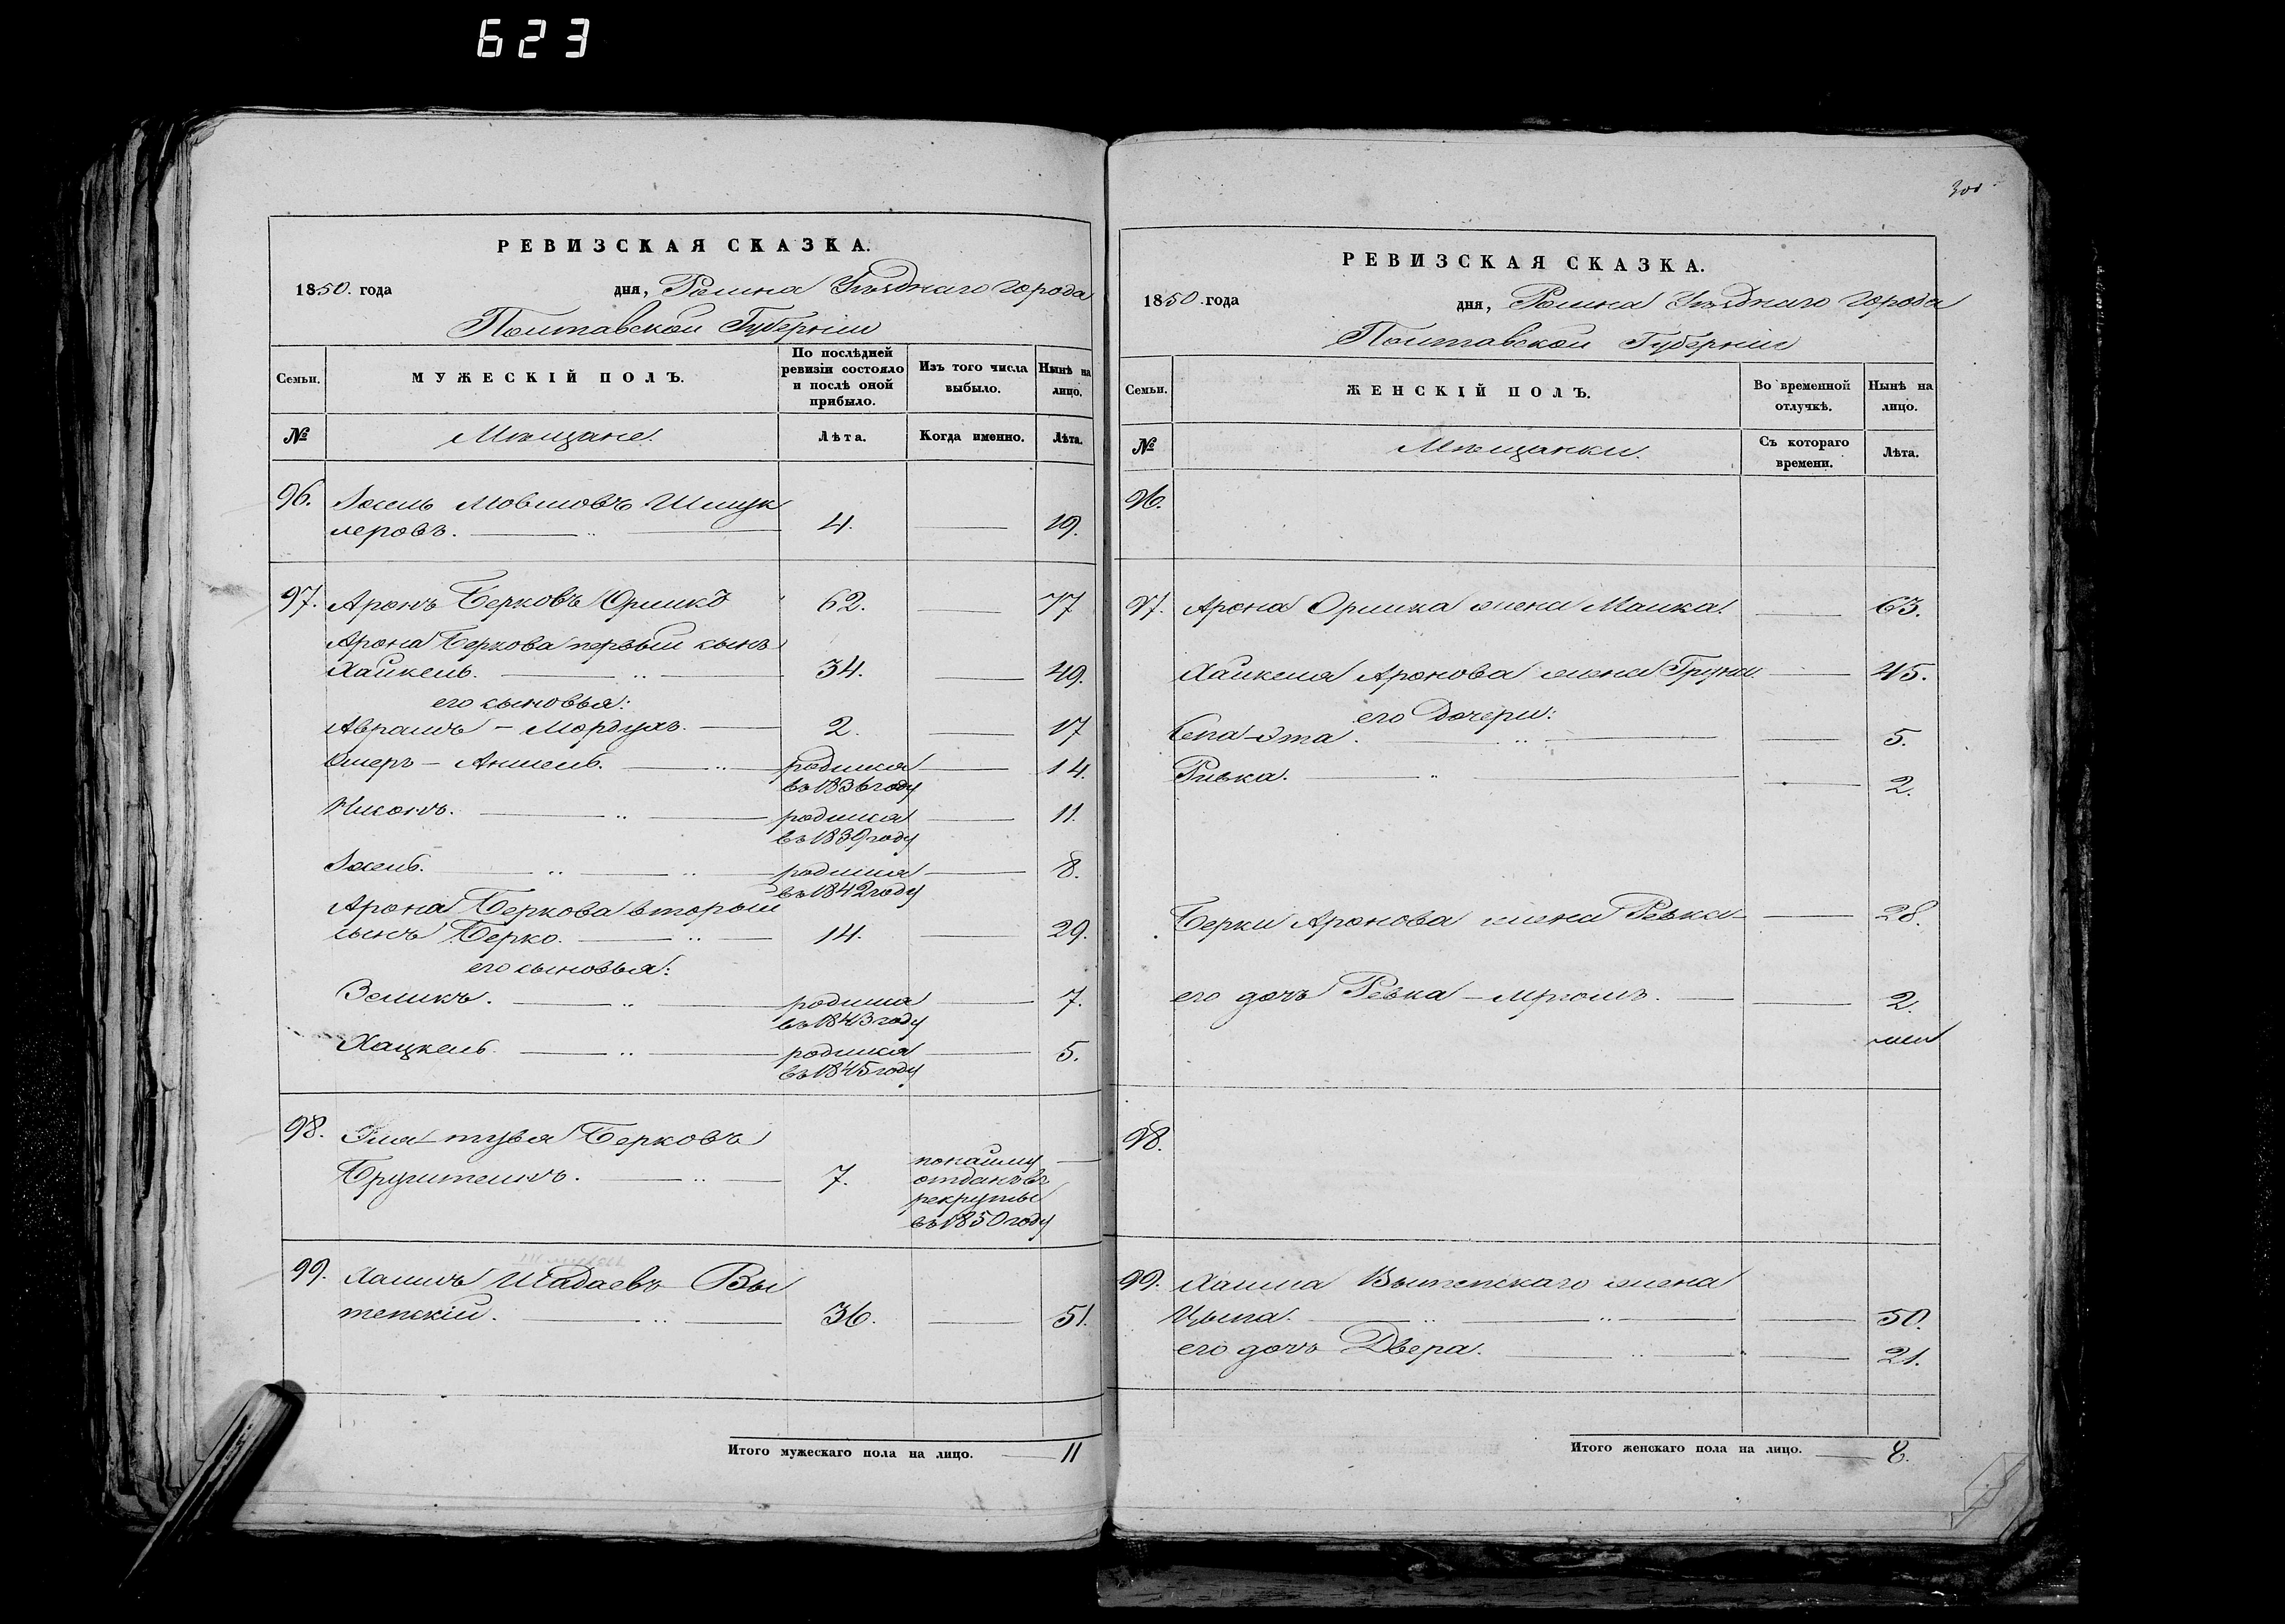 623
РЕВИЗСКАЯ СКАЗКА.
1850. года дня, Ромна Уѣзднаго города
Полтавской Губерніи
Семьи. МУЖЕСКІЙ ПОЛЪ. По послѣдней ревизіи состояло и послѣ оной прибыло. Изъ того числа выбыло. Нынѣ на лицо.
№ Мѣщане. Лѣта. Когда именно. Лѣта.
96. Іосель Мовшовъ Шмук
леровъ. 4. 19.
97. Аронъ Берковъ Орликъ 62. 77
Арона Беркова первый сынъ
Хайкель. 34. 49.
его сыновья:
Абрамъ - Мордухъ. 2. 17
Ошеръ - Аншель. родился 14.
въ 1836 году
Нисонъ. родился 11.
въ 1839 году
Іосель. родился 8.
въ 1842 году
Арона Беркова вторый
сынъ Берко. 14. 29.
его сыновья:
Зеликъ. родился 7.
въ 1843 году
Хацкель. родился 5.
въ 1845 году
98. Берковъ
7.
отданъ въ
рекруты
въ 1850 году
99. Хаимъ Вы
тепскій. 36. 51.
Итого мужескаго пола на лицо. 11
РЕВИЗСКАЯ СКАЗКА.
1850 года дня, Ромна Уѣзднаго города
Полтавской Губерніи
Семьи. ЖЕНСКІЙ ПОЛЪ. Во временной отлучкѣ. Нынѣ на лицо.
№ Мѣщанки. Съ котораго времени. Лѣта.
96.
97. Арона Орлика жена Малка. 63.
Хайкеля Аронова жена Груня 45.
его дочери:
Сепа-Эта. 5.
Ривка. 2.
Берки Аронова жена Ревка 28.
его дочь Ревка 2.
98.
99. Хаима Вытепскаго жена
Цыпа. 50.
его дочь Двера. 21.
Итого женскаго пола на лицо. 8.